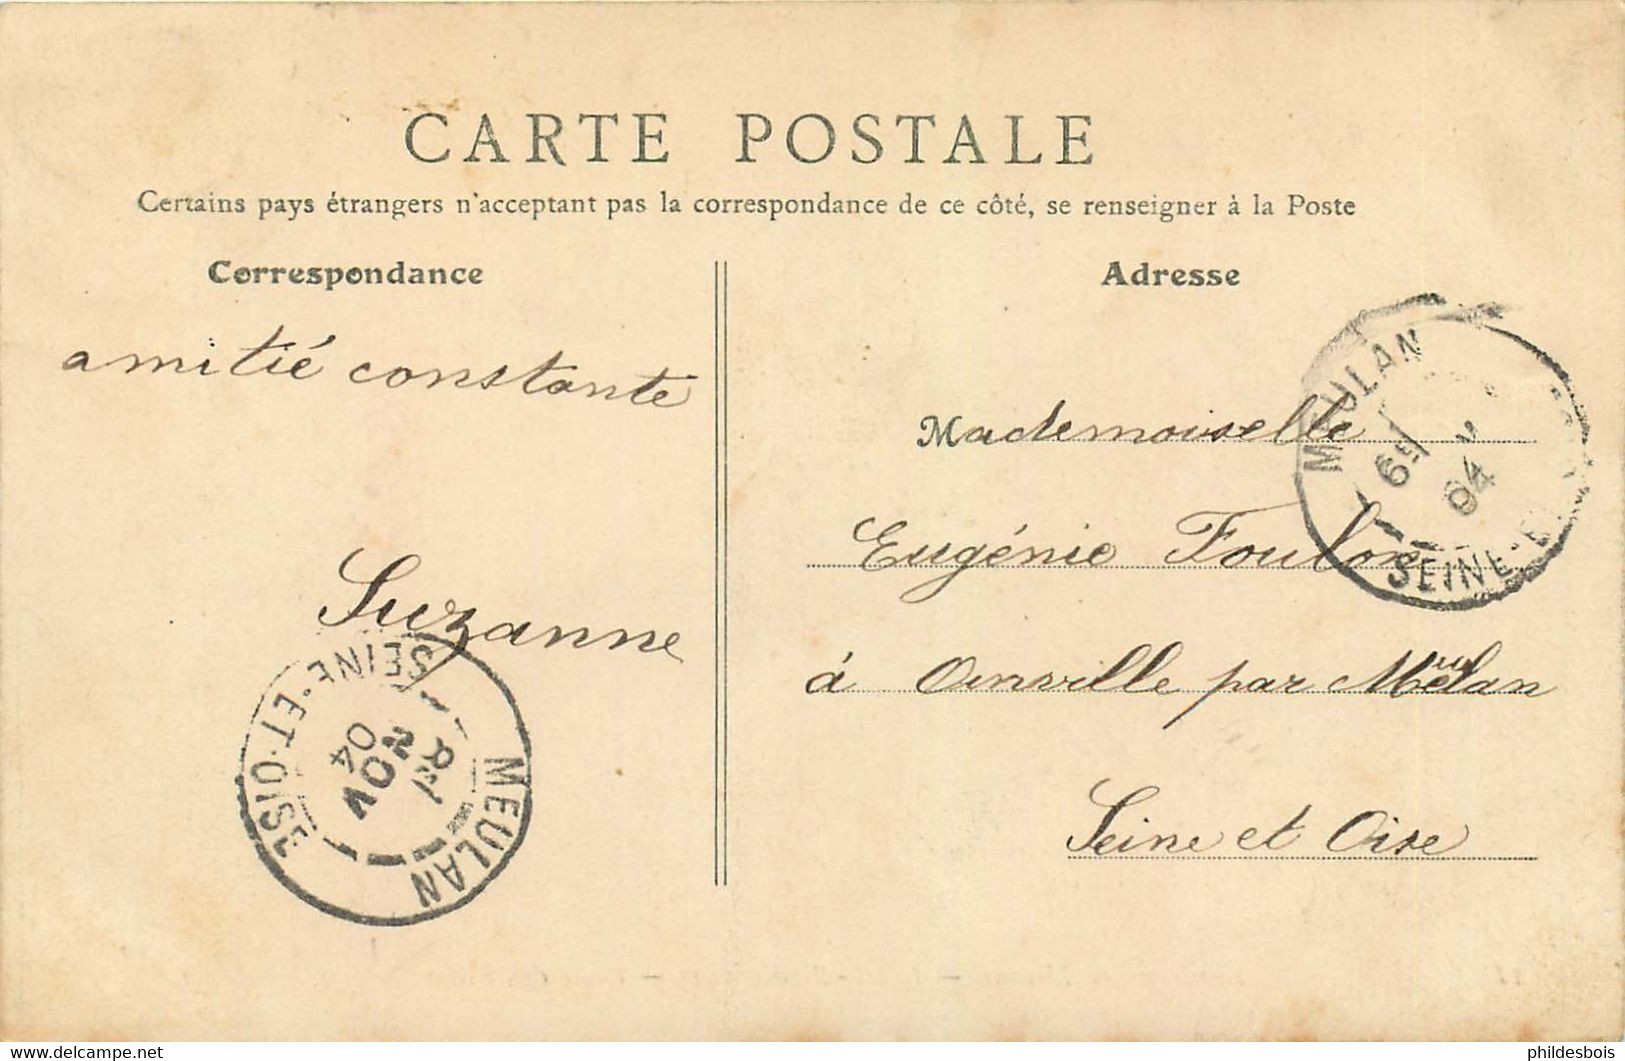 CARTE POSTALE
Certains pays étrangers n'acceptant pas la correspondance de ce côté, se renseigner à la Poste
Correspondance
amitié constante
Suzanne
Adresse
Mademoiselle
Eugénie Foulon
à Oinville par Meulan
Seine et Oise
MEULAN
SEINE-E
04
MEULAN
SEINE-ET-OISE
NOV
04
https://www.delcampe.net
phildesbois